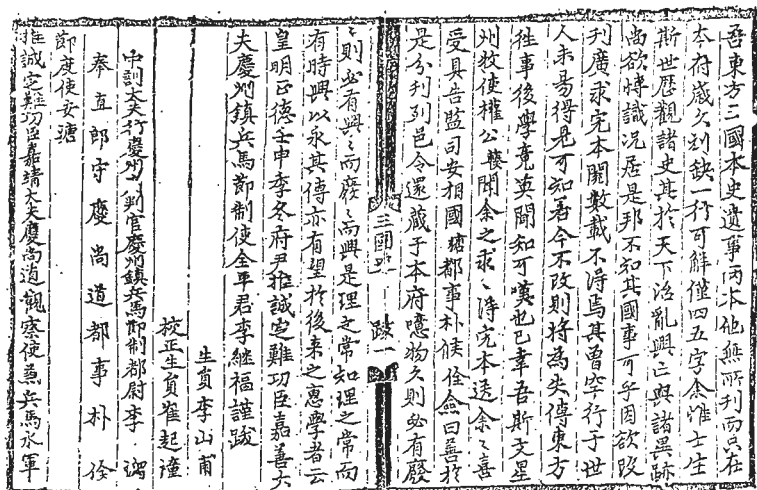 吾東方三國本史遺事兩本他無所刊而只在
本府歲久刓缺一行可解僅四五字余惟士生
斯世歷觀諸史其於天下治亂興亡與諸異跡
尚欲博識况居是邦不知其國事可乎因欲改
刊廣求完本閱數載不得焉其曾罕行于世
人未易得見可知若今不改則將為失傳東方
徃事後學竟莫聞知可嘆也已幸吾斯文星
州牧使權公輳聞余之求〻得完本送余〻喜
受具告監司安相國瑭都事朴候佺僉曰善於
是分刊列邑令還藏于本府噫物久則必有廢
三國 跋 一
〻則必有興〻而廢〻而興是理之常知理之常而
有時興以永其傳亦有望於後来之惠學者云
皇明正德壬申季冬府尹推誠定難功臣嘉善大
夫慶州鎮兵馬節制使全平君李継福謹跋
生貟李山甫
校正生貟崔起潼
中訓大夫行慶州府判官慶州鎮兵馬節制都尉李
奉直郎守慶尚道都事朴佺
節度使安瑭
推誠定難功臣嘉靖大夫慶尚道觀察使兼兵馬水軍